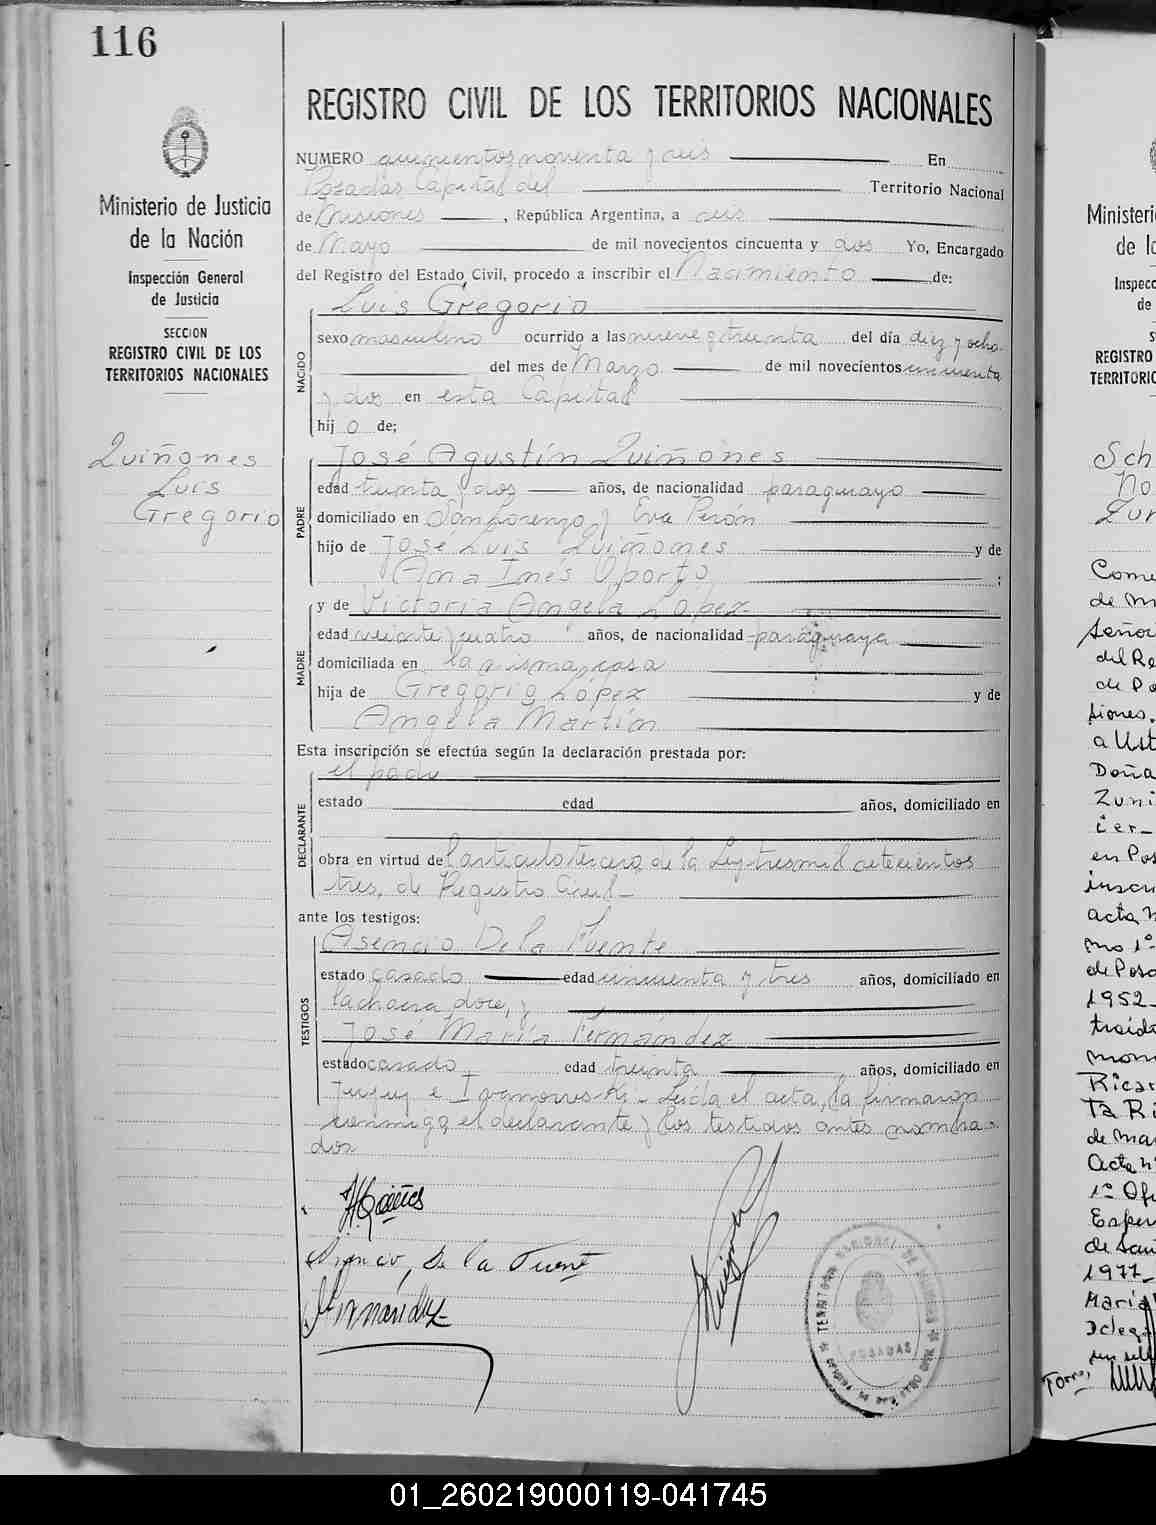 116
Ministerio de Justicia
de la Nación
Inspección General
de Justicia
SECCION
REGISTRO CIVIL DE LOS
TERRITORIOS NACIONALES
Quiñones
Luis
Gregorio
REGISTRO CIVIL DE LOS TERRITORIOS NACIONALES
NUMERO quinientos noventa y seis En
Posadas Capital del Territorio Nacional
de Misiones, República Argentina, a seis
de Mayo de mil novecientos cincuenta y dos Yo, Encargado
del Registro del Estado Civil, procedo a inscribir el Nacimiento de:
NACIDO
Luis Gregorio
sexo masculino ocurrido a las nueve y treinta del día diez y ocho
del mes de Marzo de mil novecientos cincuenta
y dos en esta Capital
hijo de;
PADRE
José Agustín Quiñones
edad treinta y dos años, de nacionalidad paraguayo
domiciliado en San Lorenzo y Eva Perón
hijo de José Luis Quiñones y de
Ana Inés Oporto ;
MADRE
y de Victoria Angela López
edad veinte y cuatro años, de nacionalidad paraguaya
domiciliada en la misma casa
hija de Gregorio López y de
Angela Martín
Esta inscripción se efectúa según la declaración prestada por:
DECLARANTE
el padre
estado edad años, domiciliado en
obra en virtud del artículo tercero de la Ley tres mil setecientos
tres, de Registro Civil
ante los testigos:
TESTIGOS
Asencio De la Fuente
estado casado edad cincuenta y tres años, domiciliado en
la chacra doce, y
José María Fernandez
estado casado edad treinta años, domiciliado en
Jujuy e Ivanowski. Leída el acta, la firmaron
conmigo, el declarante y los testigos antes nombra-
dos
Asencio, De la Fuente
Fernández
TERRITORIO NACIONAL DE MISIONES
POSADAS
OFICINA DE REGISTRO CIVIL
Ministeri
de la
Inspecc
de
REGISTRO
TERRITORIO
Sch
No
Zun
Come
de m
señor
del Re
de Po
siones.
a Ust
Doña
Zuni
cer-
en Pos
inscri
acta n
mo 1º
de Posa
1952-
traida
Ricar
Ta Ri
de Mar
Acta nº
1º Ofi
Esper
de San
1977-
María
Torres
01_260219000119-041745